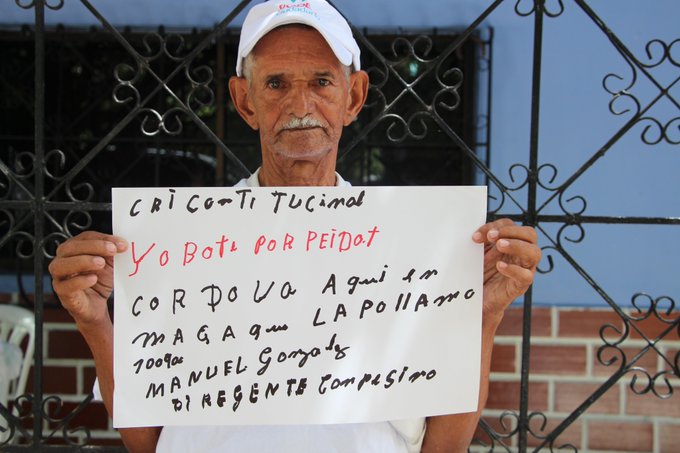 CRI CONTI TUCIMAL
YO Bote POR PEIDAT
CORDOVA Aqui en
MAGA que LA POLLAMO
MANUEL Gonzalz
DIREGENTE Compesino